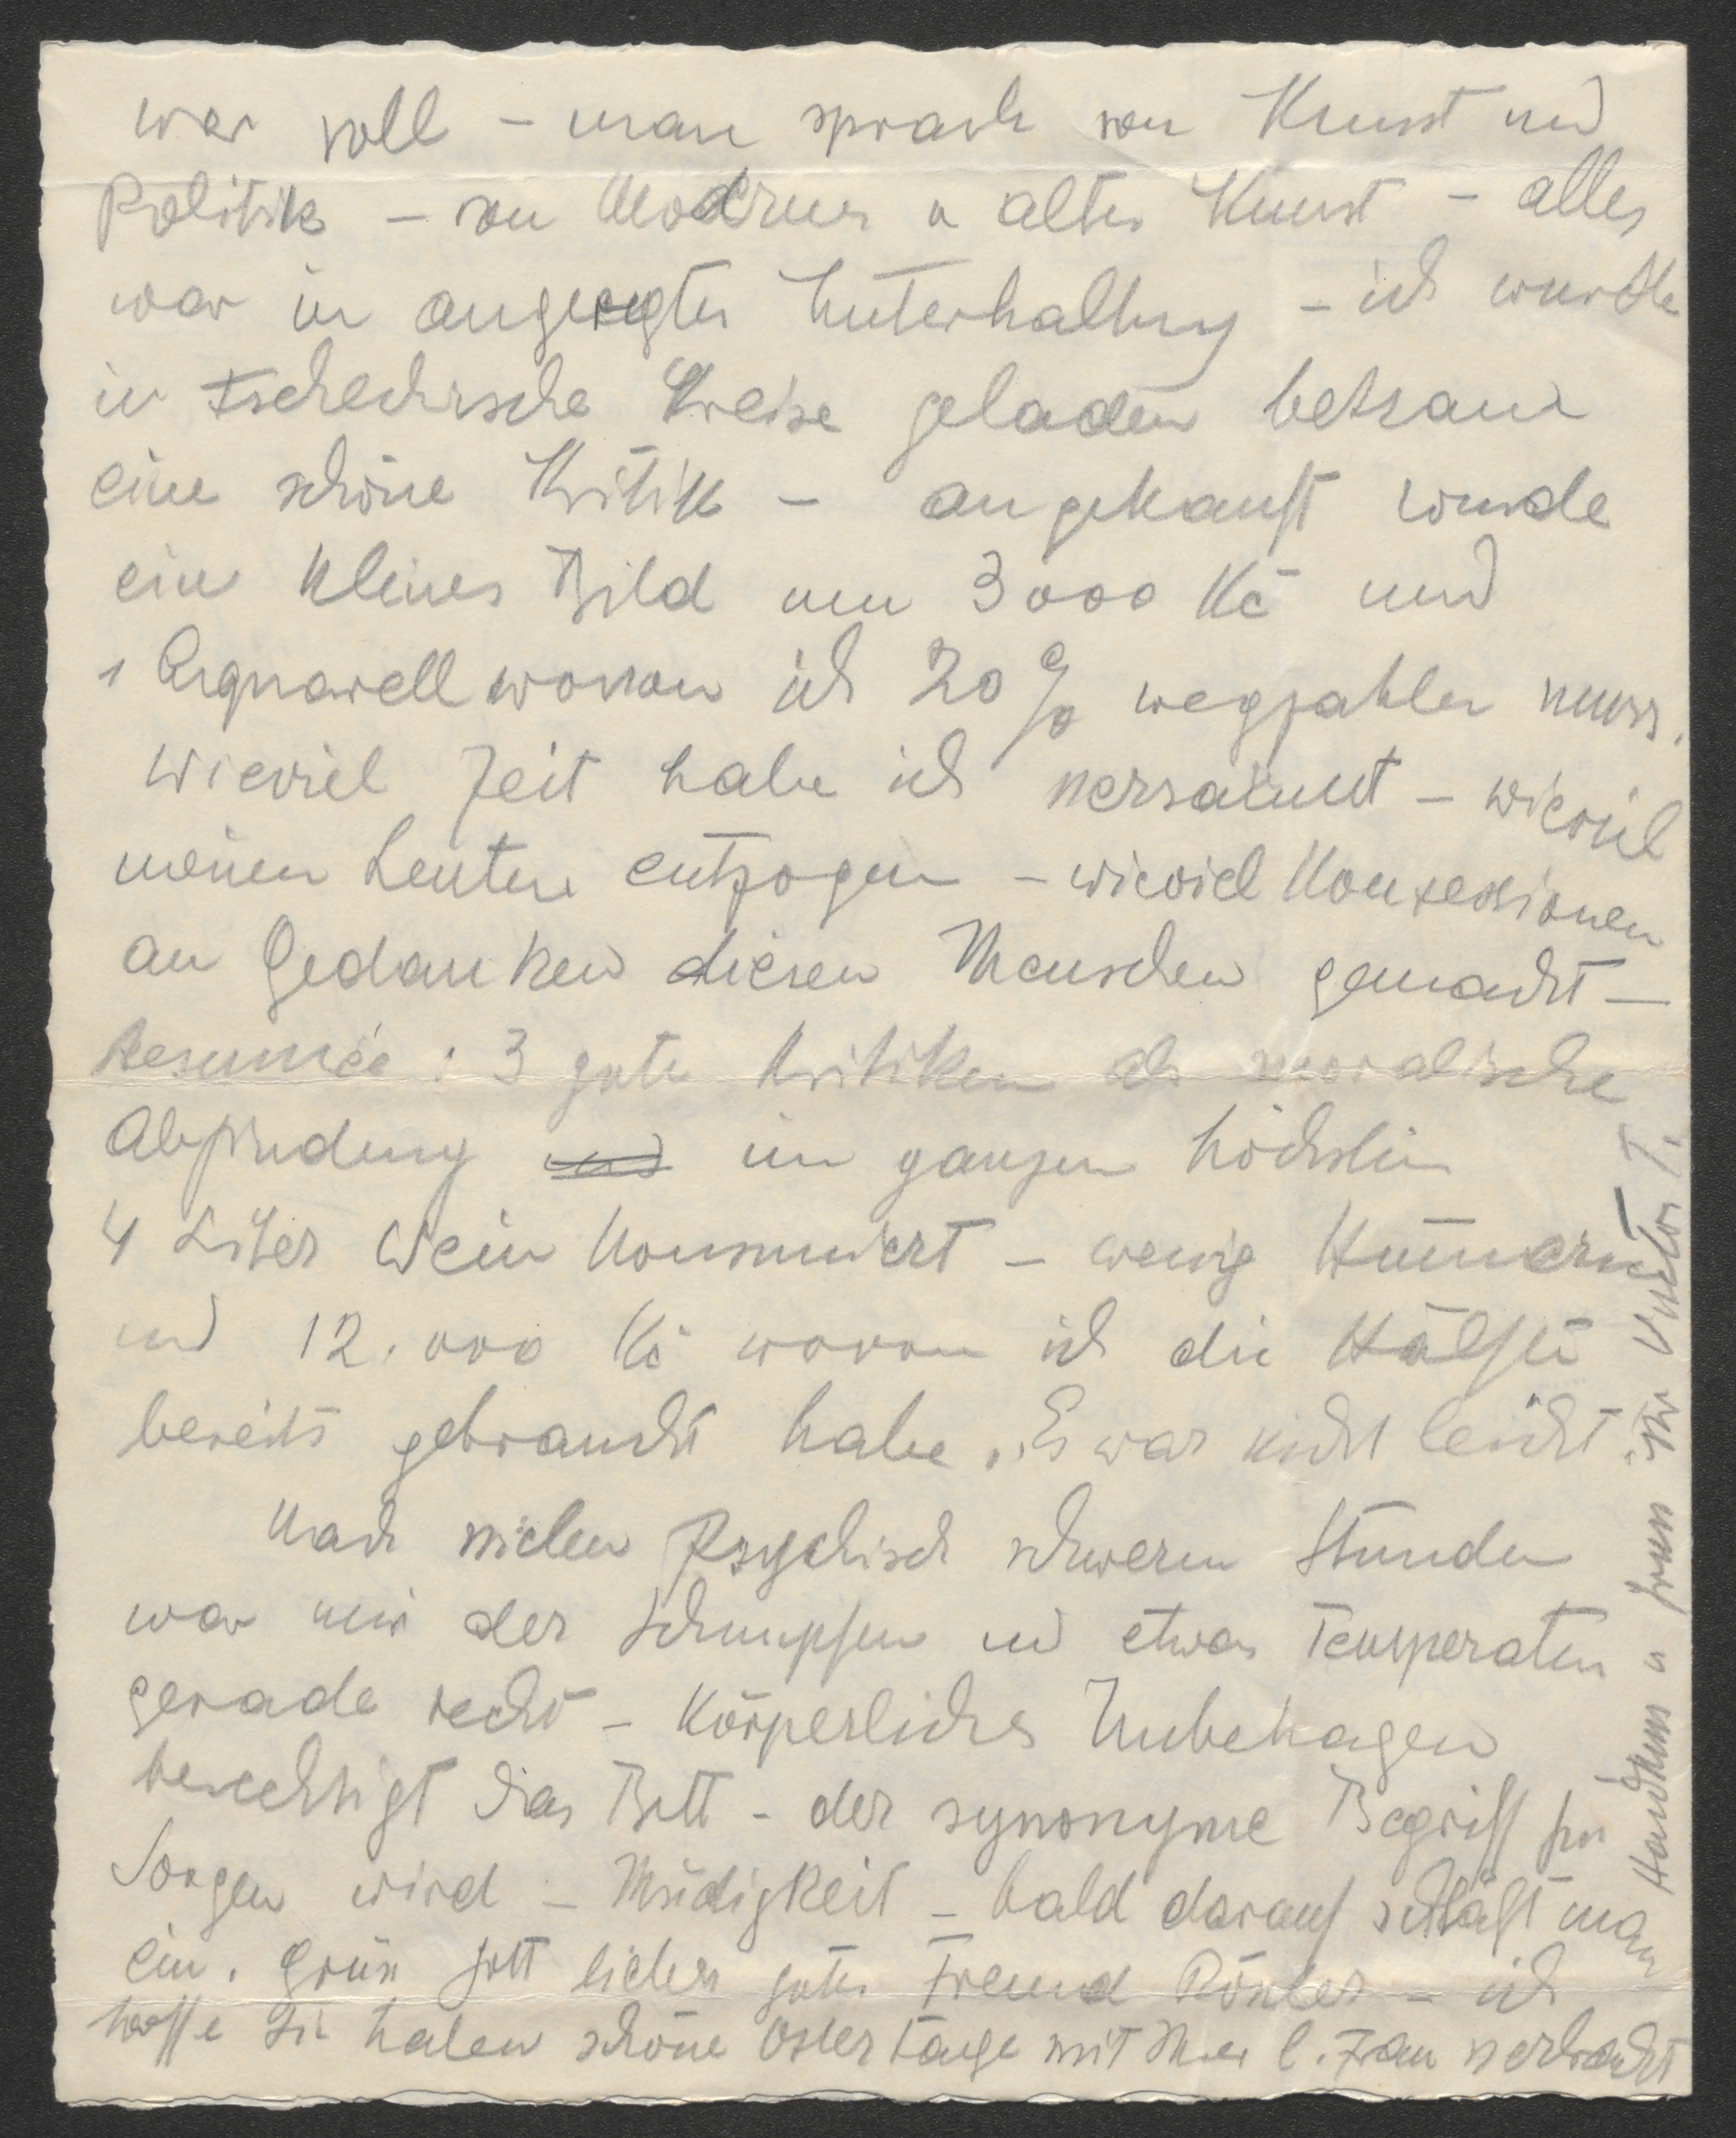 war voll – man sprach von Kunst und
Politik – von Moderner u alter Kunst – alles
war in angeregter Unterhaltung – ich wurde
in tschechische Kreise geladen bekam
eine schöne Kritik – angekauft wurde
ein kleines Bild um 3000 Kč und
1 Aquarell wovon ich 20 % wegzahlen muss.
wieviel Zeit habe ich versäumt – wieviel
meinen Leuten entzogen – wieviel Konzessionen
an Gedanken diesen Menschen gemacht –
Resumée : 3 gute Kritiken als moralische
Abfindung und im ganzen höchstens
4 Liter Wein konsumiert – wenig
und 12.000 Kč wovon ich die Hälfte
bereits gebraucht habe. Es war nicht leicht.
Nach vielen psychisch schweren Stunden
war mir der Schnupfen und etwas Temperatur
gerade recht – körperliches Unbehagen
berechtigt das Bett – der synonyme Begriff für
Sorgen wird – Müdigkeit – bald darauf schläft man
ein. Grüss Gott lieber guter Freund Rössler – ich
hoffe Sie haben schöne Ostertage mit Ihrer l. Frau verbracht
Handkuss u Gruss Ihr Viktor T.